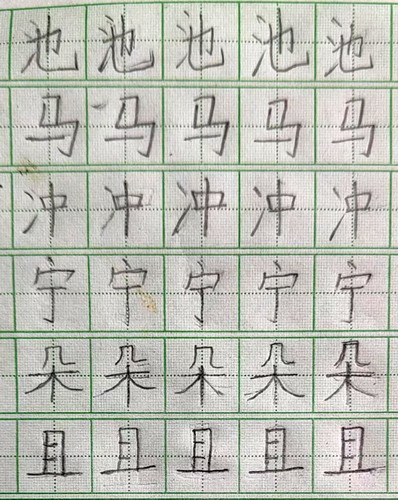 池池池池池
马马马马马
冲冲冲冲冲
宁宁宁宁宁
朵朵朵朵朵
且且且且且